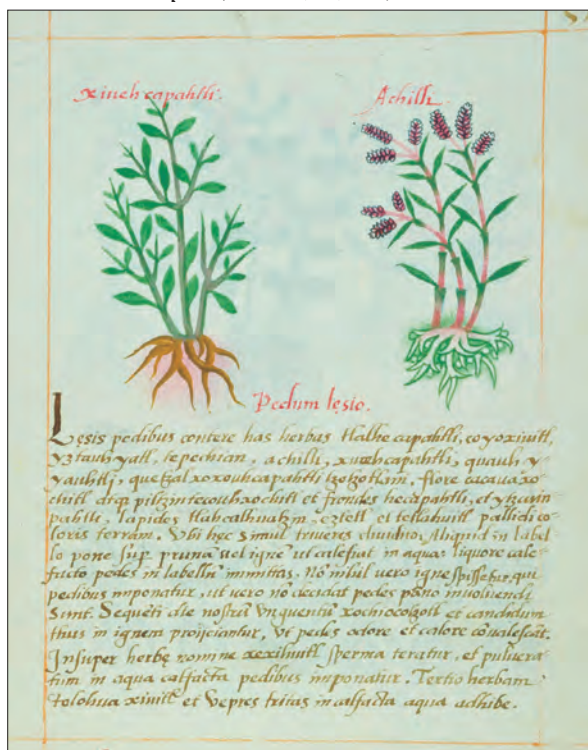 xiuehcapahtli. Achilli.
Pedum lęsio.
Lęsis pedibus contere has herbas tlalhecapahtli, coyoxiuitl,
yztauhyatl, tepechian, achilli, xiuehcapahtli, quauhy
yauhtli, quetzalxoxouhcapahtli tzotzotlani, flore cacauaxo-
chitl atq piltzintecouhxochitl et frondes hecapahtli, et ytzcuin
pahtli, lapides tlahcalhuatzin, eztetl et tetlahuitl pallidi co-
loris terram. Vbi hęc simul triueris diuidito, Aliquid in label
lo pone sup pruna uel igne ut calefiat in aqua: liquore cale-
facto pedes in labellu immittas. No nihil vero igne spissetur, qui
pedibus imponatur, ut vero no decidat pedes pano inuoluendi
sunt. Sequeti die nostru vnguentu xochiocotzotl et candidum
thus in ignem proijciantur, vt pedes odore et calore coualescat.
Insuper herbę nomine xexihuitl sperma teratur, et puluera
tum in aqua calfacta pedibus imponatur. Tertio herbam
tolohua xiuitl et vepres tritas in calfacta aqua adhibe.